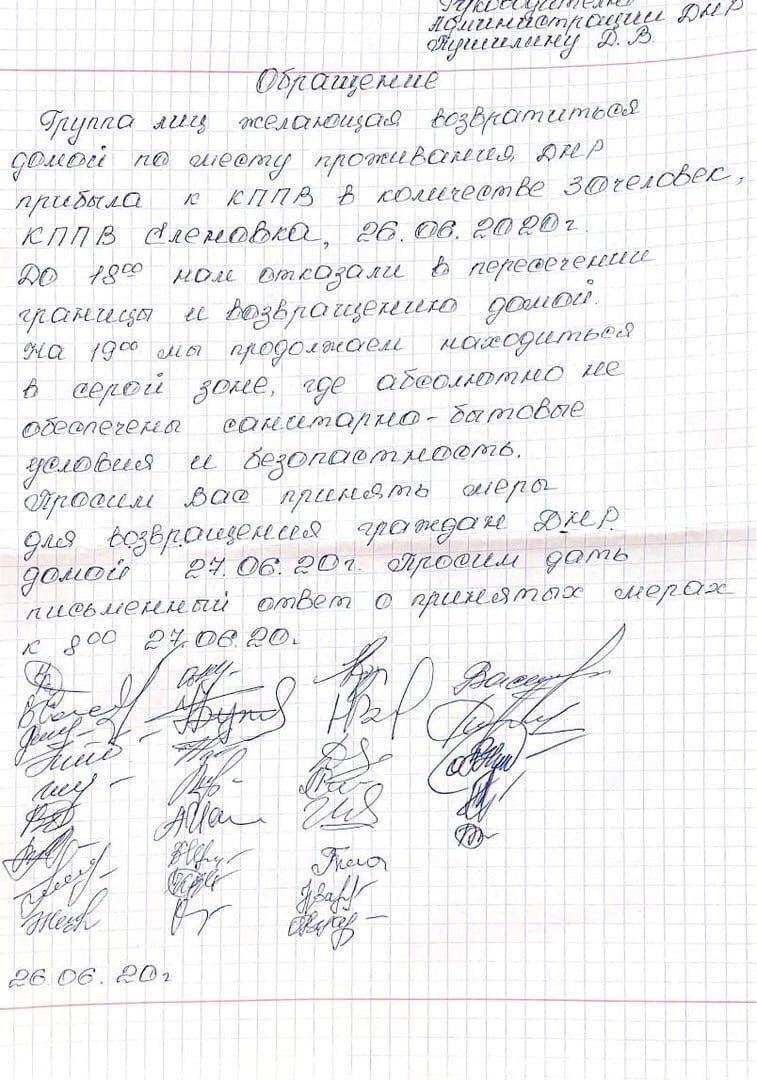 Руководителю
Администрации ДНР
Пушилину Д.В.
Обращение
Группа лиц желающая возвратиться
домой по месту проживания, ДНР
прибыла к КППВ в количестве 30 человек,
КППВ Еленовка, 26.06.2020г.
До 18⁰⁰ нам отказали в пересечении
границы и возвращению домой.
На 19⁰⁰ мы продолжаем находиться
в серой зоне, где абсолютно не
обеспечены санитарно-бытовые
условия и безопастность.
Просим Вас принять меры
для возвращения граждан ДНР.
домой 27.06.20г. Просим дать
письменный ответ о принятых мерах
к 8⁰⁰ 27.06.20г.
26.06.20г